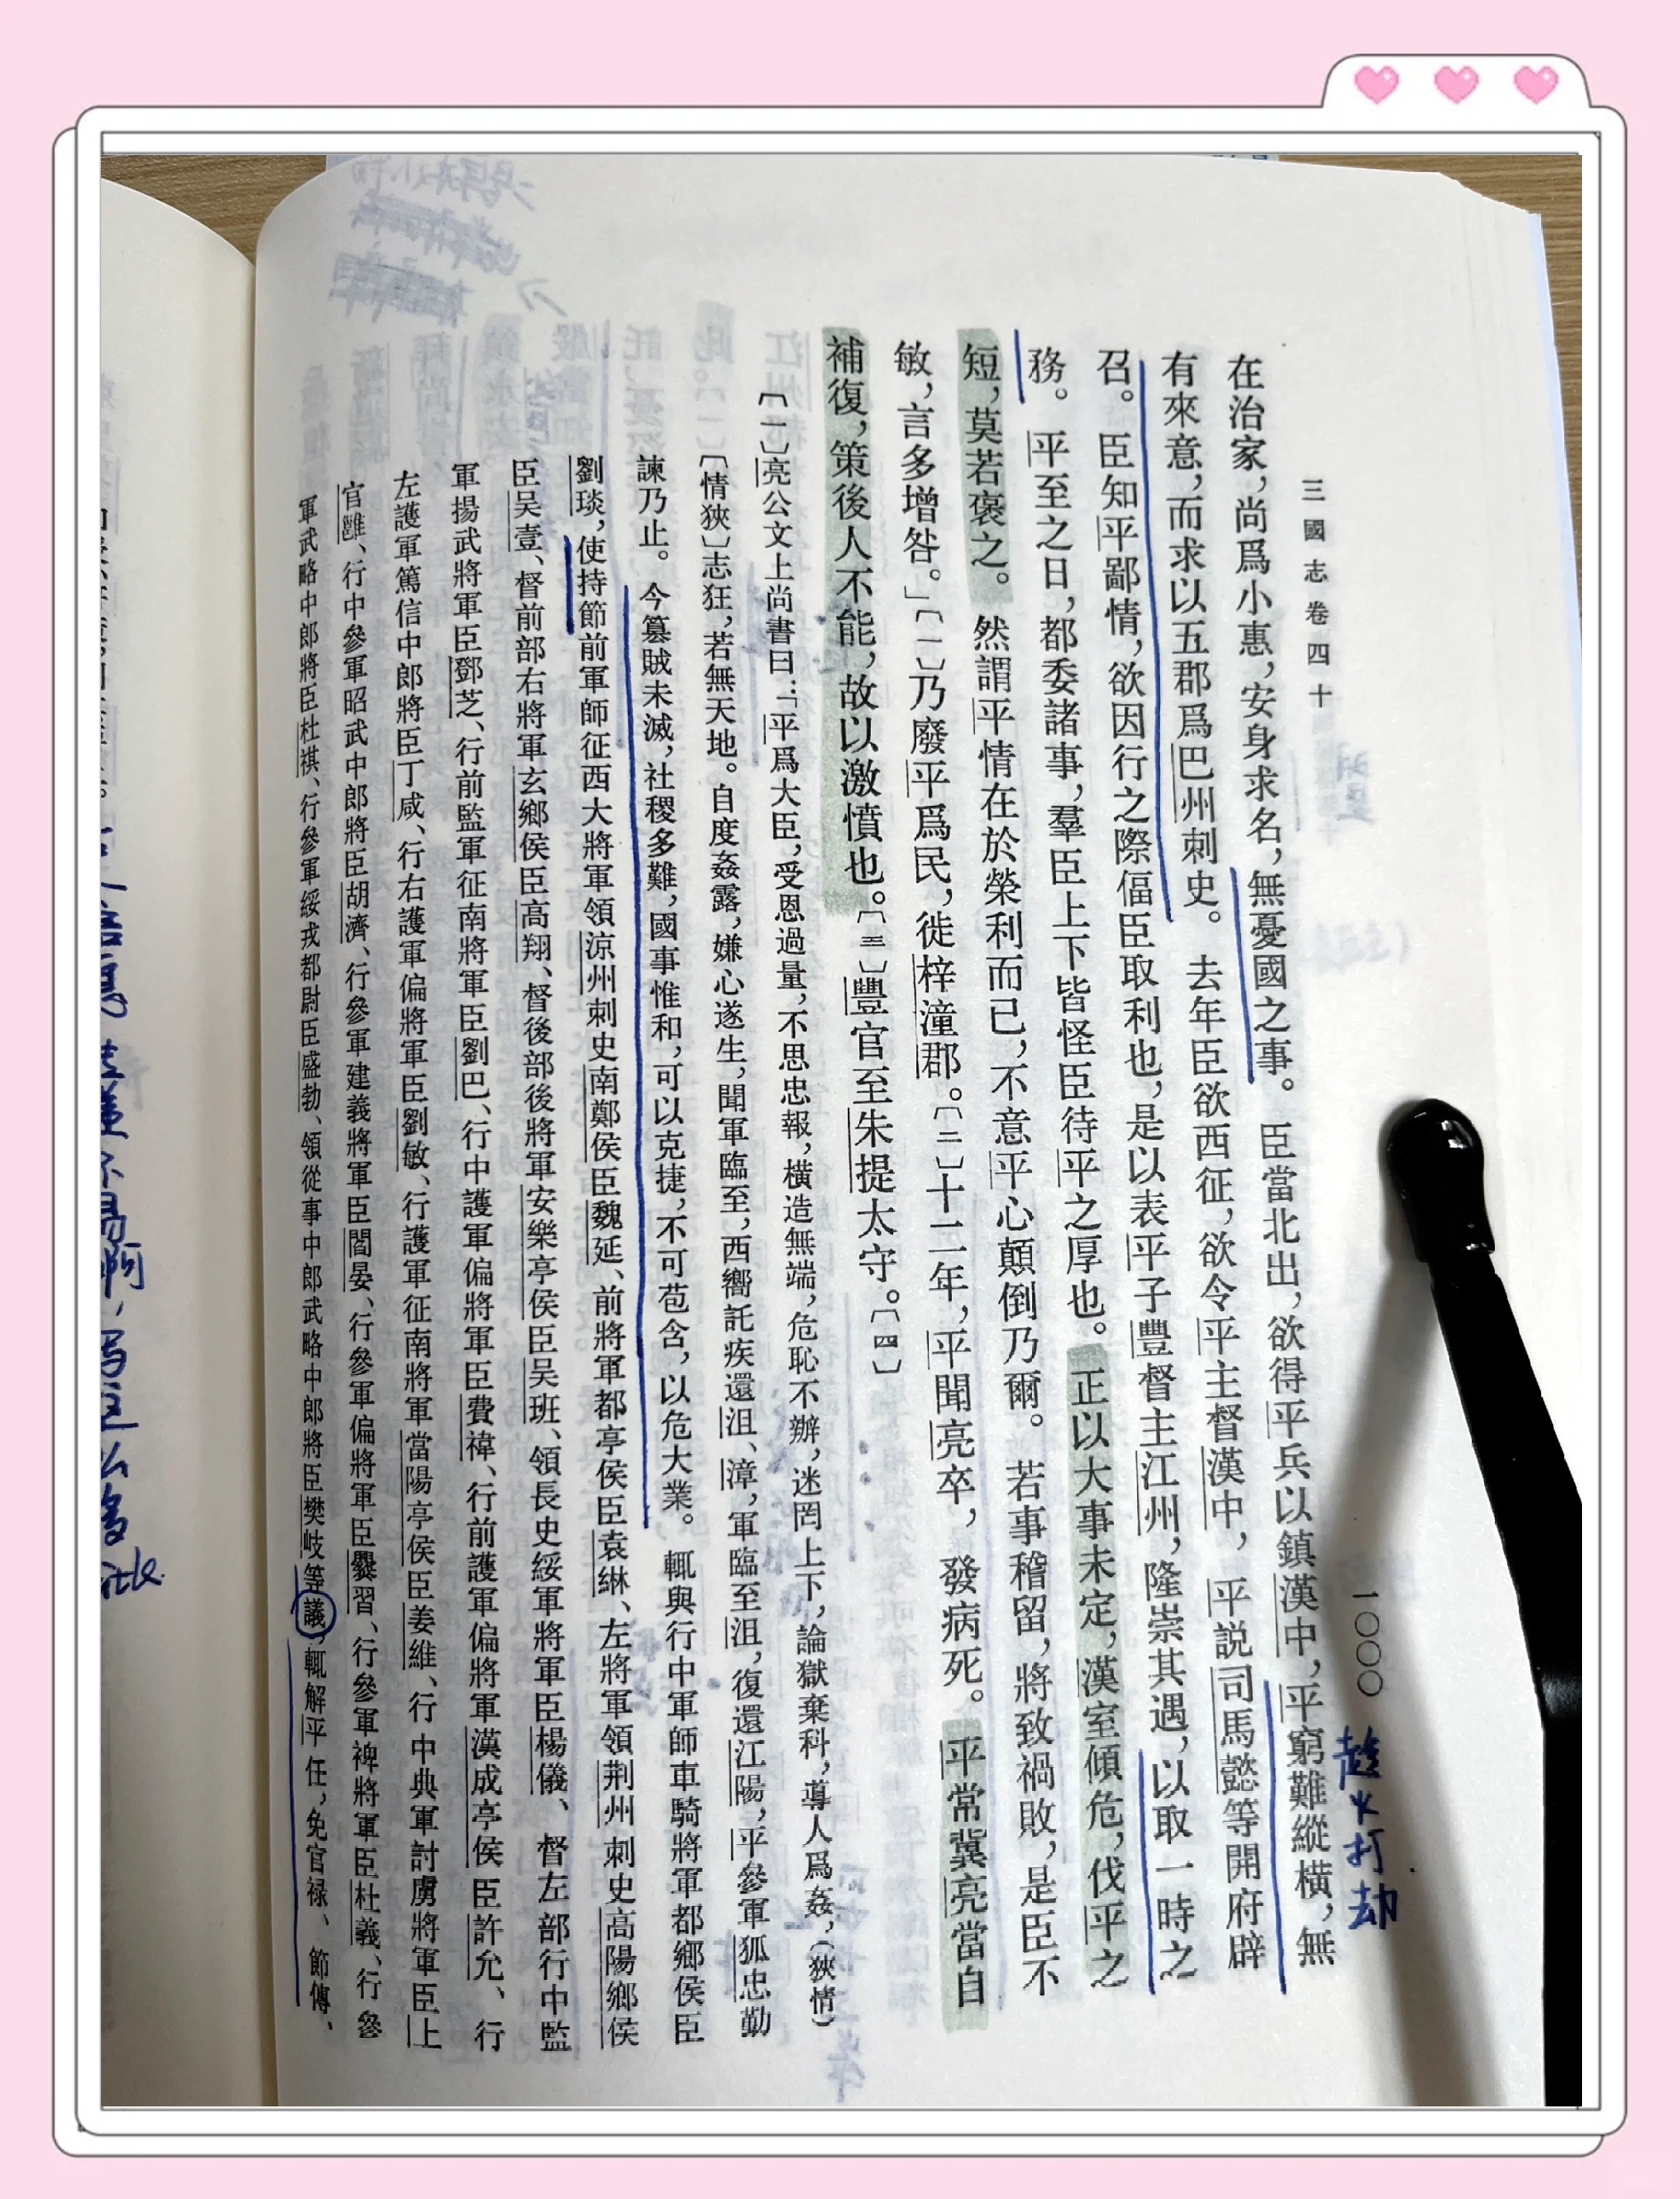 三國志卷四十
一〇〇〇
趁火打劫
在治家，尚爲小惠，安身求名，無憂國之事。臣當北出，欲得平兵以鎮漢中，平窮難縱橫，無
有來意，而求以五郡爲巴州刺史。去年臣欲西征，欲令平主督漢中，平說司馬懿等開府辟
召。臣知平鄙情，欲因行之際偪臣取利也，是以表平子豐督主江州，隆崇其遇，以取一時之
務。平至之日，都委諸事，羣臣上下皆怪臣待平之厚也。正以大事未定，漢室傾危，伐平之
短，莫若褒之。然謂平情在於榮利而已，不意平心顛倒乃爾。若事稽留，將致禍敗，是臣不
敏，言多增咎。」〔一〕乃廢平爲民，徙梓潼郡。〔二〕十二年，平聞亮卒，發病死。平常冀亮當自
補復，策後人不能，故以激憤也。〔三〕豐官至朱提太守。〔四〕
〔一〕亮公文上尚書曰：「平爲大臣，受恩過量，不思忠報，橫造無端，危恥不辦，迷罔上下，論獄棄科，導人爲姦，（狹情）
〔情狹〕志狂，若無天地。自度姦露，嫌心遂生，聞軍臨至，西嚮託疾還沮、漳，軍臨至沮，復還江陽，平參軍狐忠勤
諫乃止。今篡賊未滅，社稷多難，國事惟和，可以克捷，不可苞含，以危大業。輒與行中軍師車騎將軍都鄉侯臣
劉琰，使持節前軍師征西大將軍領涼州刺史南鄭侯臣魏延、前將軍都亭侯臣袁綝、左將軍領荆州刺史高陽鄉侯
臣吴壹、督前部右將軍玄鄉侯臣高翔、督後部後將軍安樂亭侯臣吴班、領長史綏軍將軍臣楊儀、督左部行中監
軍揚武將軍臣鄧芝、行前監軍征南將軍臣劉巴、行中護軍偏將軍臣費禕、行前護軍偏將軍漢成亭侯臣許允、行
左護軍篤信中郎將臣丁咸、行右護軍偏將軍臣劉敏、行護軍征南將軍當陽亭侯臣姜維、行中典軍討虜將軍臣上
官雝、行中參軍昭武中郎將臣胡濟、行參軍建義將軍臣閻晏、行參軍偏將軍臣爨習、行參軍裨將軍臣杜義、行參
軍武略中郎將臣杜祺、行參軍綏戎都尉臣盛勃、領從事中郎武略中郎將臣樊岐等議，輒解平任，免官禄、節傳、